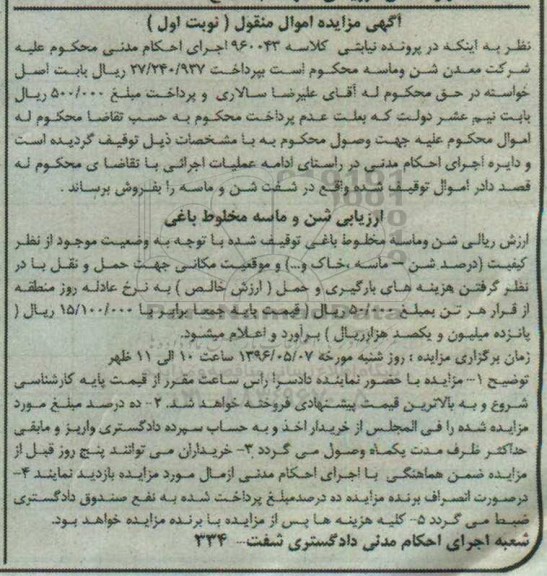 آگهی مزایده اموال منقول ( نوبت اول )
نظر به اینکه در پرونده نیابتی کلاسه ۹۶۰۰۴۳ اجرای احکام مدنی محکوم علیه
شرکت معدن شن وماسه محکوم است بپرداخت ۲۷/۲۴۰/۹۳۷ ریال بابت اصل
خواسته در حق محکوم له آقای علیرضا سالاری و پرداخت مبلغ ۵۰۰/۰۰۰ ریال
بابت نیم عشر دولت که بعلت عدم پرداخت محکوم به حسب تقاضا محکوم له
اموال محکوم علیه جهت وصول محکوم به با مشخصات ذیل توقیف گردیده است
و دایره اجرای احکام مدنی در راستای ادامه عملیات اجرائی با تقاضا ی محکوم له
قصد دادر اموال توقیف شده واقع در شفت شن و ماسه را بفروش برساند .
ارزیابی شن و ماسه مخلوط باغی
ارزش ریالی شن وماسه مخلوط باغی توقیف شده با توجه به وضعیت موجود از نظر
کیفیت (درصد شن – ماسه ،خاک و...) و موقعیت مکانی جهت حمل و نقل با در
نظر گرفتن هزینه های بارگیری و حمل ( ارزش خالص ) به نرخ عادله روز منطقه
از قرار هر تن بمبلغ ۵۰/۰۰۰ ریال ( قیمت پایه جمعا برابر با ۱۵/۱۰۰/۰۰۰ ریال (
پانزده میلیون و یکصد هزارریال ) برآورد و اعلام میشود.
زمان برگزاری مزایده : روز شنبه مورخه ۱۳۹۶/۰۵/۰۷ ساعت ۱۰ الی ۱۱ ظهر
توضیح ۱- مزایده با حضور نماینده دادسرا راس ساعت مقرر از قیمت پایه کارشناسی
شروع و به بالاترین قیمت پیشنهادی فروخته خواهد شد. ۲- ده درصد مبلغ مورد
مزایده شده را فی المجلس از خریدار اخذ و به حساب سپرده دادگستری واریز و مابقی
حداکثر ظرف مدت یکماه وصول می گردد ۳- خریداران می توانند پنج روز قبل از
مزایده ضمن هماهنگی با اجرای احکام مدنی ازمال مورد مزایده بازدید نمایند ۴-
درصورت انصراف برنده مزایده ده درصدمبلغ پرداخت شده به نفع صندوق دادگستری
ضبط می گردد ۵- کلیه هزینه ها پس از مزایده با برنده مزایده خواهد بود.
شعبه اجرای احکام مدنی دادگستری شفت... ۳۳۴